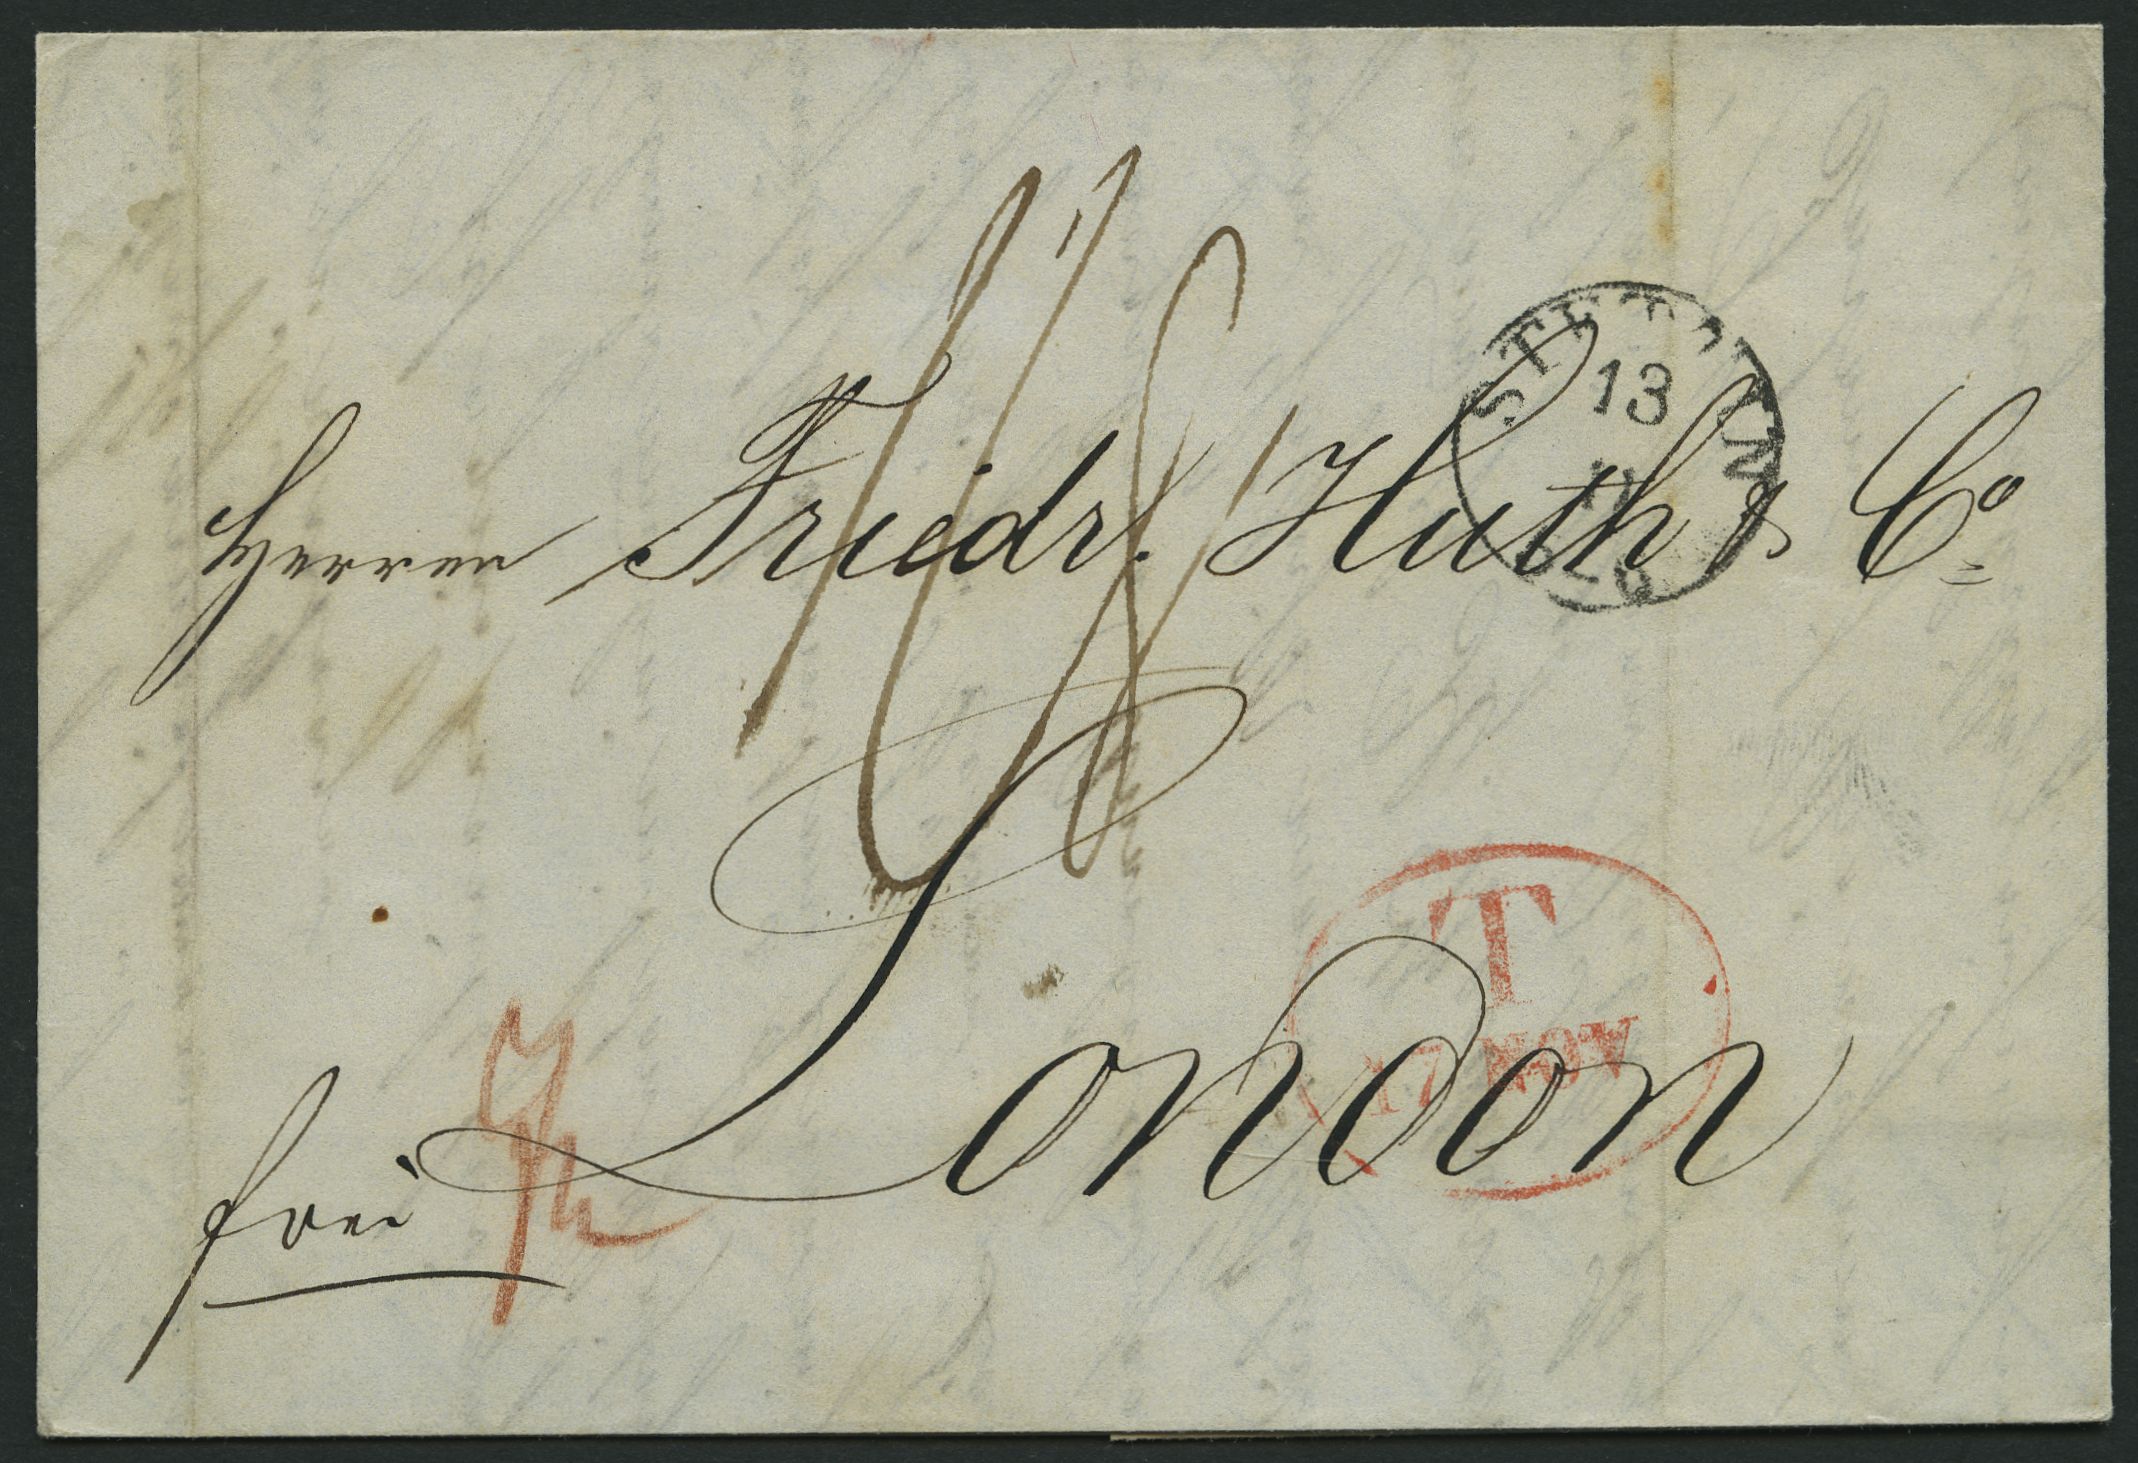 13
Herren Friedr. Huth & Co
T
17 NOV
London
frei